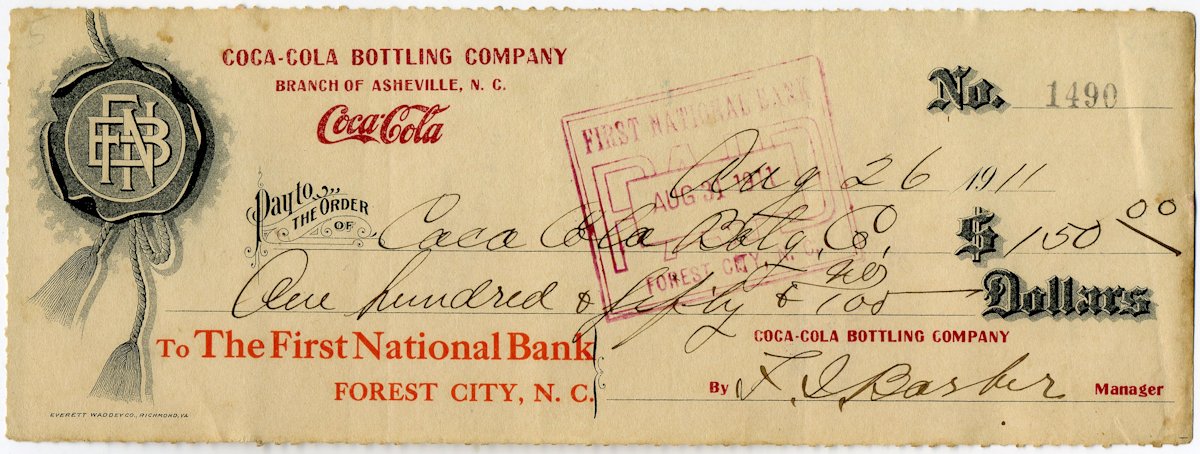 COCA-COLA BOTTLING COMPANY
BRANCH OF ASHEVILLE, N. C.
Coca-Cola
No. 1490
FIRST NATIONAL BANK
PAID
AUG 31 1911
FOREST CITY, N. C.
Aug 26 1911
Pay to THE ORDER OF Coca Cola Botlg. Co. $ 150 00
One hundred & fifty & no/100 Dollars
To The First National Bank
FOREST CITY, N. C.
COCA-COLA BOTTLING COMPANY
By Barber Manager
EVERETT WADDEY CO., RICHMOND, VA.
FNB